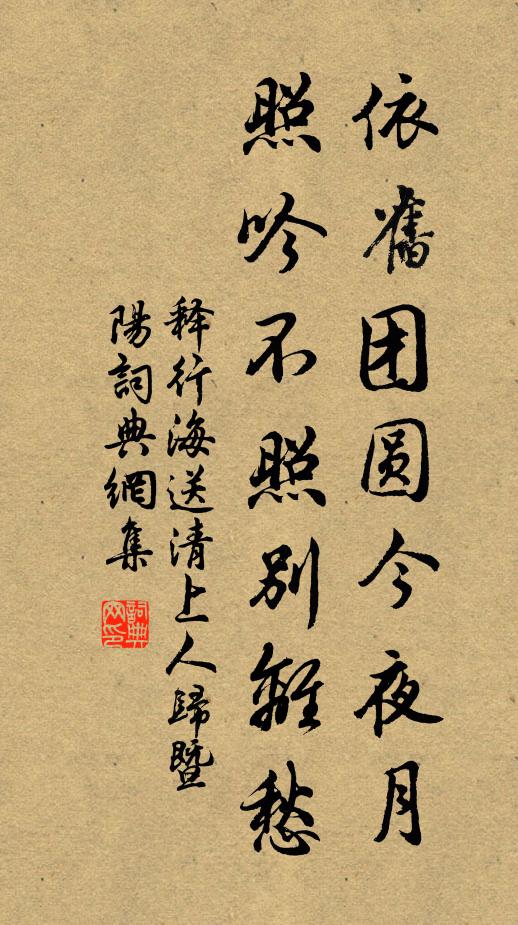 依舊团圆今夜月
照吟不照别離愁
释行海送清上人歸暨
陽詞典網集
詞典
网印